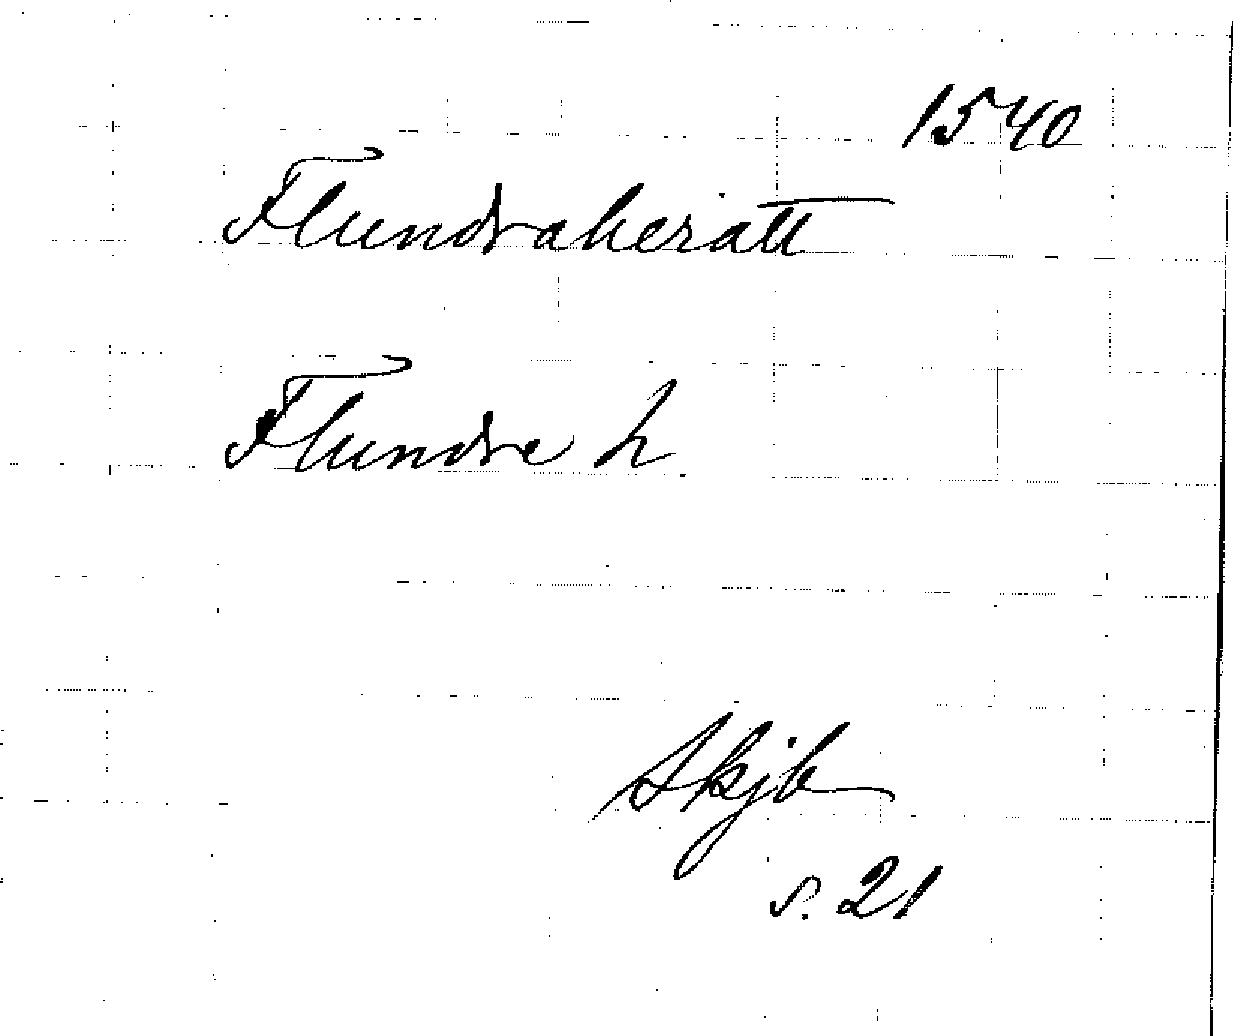 1540
Flundraherätt
Flundre h.
Skjb
s. 21